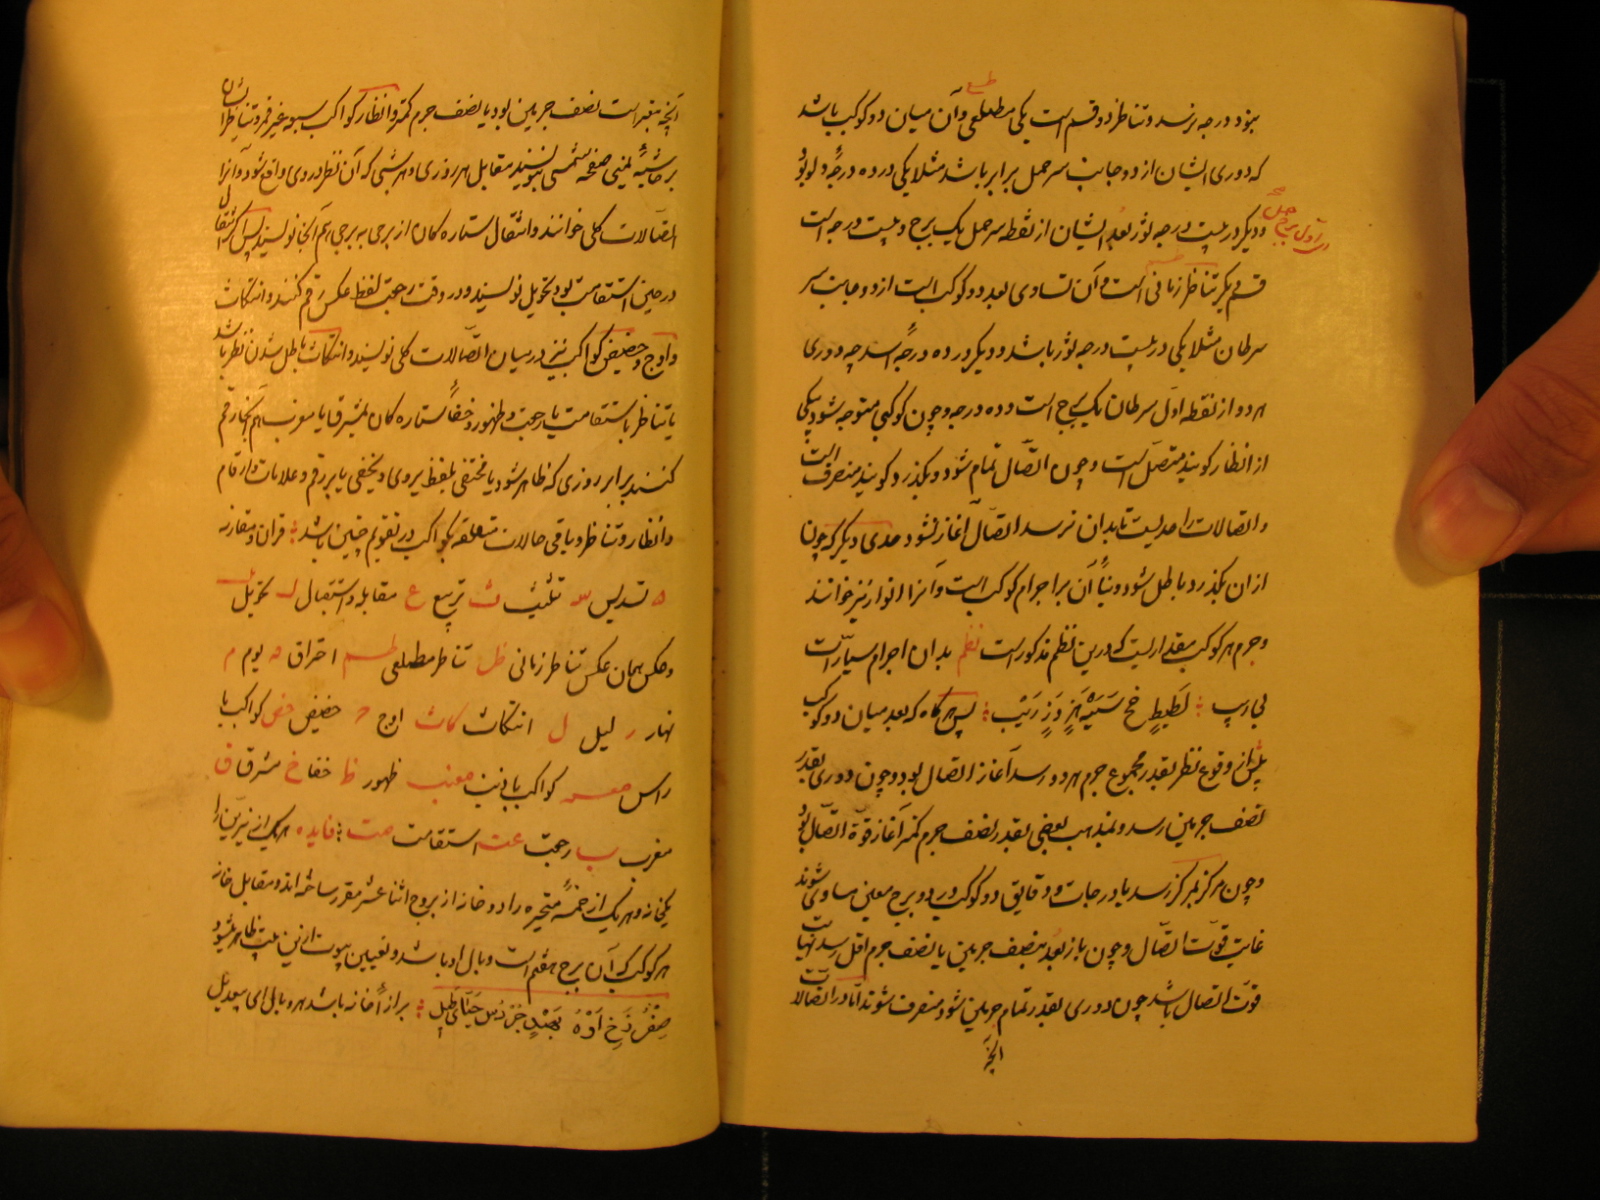 بنود درجه نرسد و تناظر دو قسم است یکی مطلعی و آن میان دو کوکب باشد
که دوری ایشان از دو جانب سر حمل برابر باشد مثلا یکی در ده درجهٔ دلو بود
و دیگر در بیست درجه ثور بعد ایشان از نقطه سر حمل یک برج و بیست درجه است
قسم دیگر تناظر زمانی است و آن تساوی بعد دو کوکب است از دو جانب سر
سرطان مثلا یکی در بیست درجه ثور باشد و دیگر در ده درجه اسد چه دوری
هر دو از نقطه اول سرطان یک برج است و ده درجه و چون کوکبی متوجه شود بیکی
از انظار کویند متصل است و چون اتصال تمام شود و بکذرد کویند منصرف است
و اتصالات را حدیست تا بدان نرسد اتصال آغاز نشود و حدی دیکر که چون
از ان بکذرد باطل شود و بناء آن بر اجرام کوکب است و آنرا انوار نیز خوانند
و جرم هر کوکب مقداریست که درین نظم مذکور است نظم بدان اجرام سیارات
پس هرکاه که بعد میان دو کوکب
پیش از وقوع نظر بقدر مجموع جرم هر دو رسد آغاز اتصال بود و چون دوری بقدر
نصف جرمین رسد و بمذهب بعضی بقدر نصف جرم کمتر آغاز قوة اتصال بود
و چون مرکز بمرکز رسد یا درجات و دقایق دو کوکب در دو برج معین مساوی شوند
غایت قوت اتصال و چون باز بعد بنصف جرمین یا نصف جرم اقل رسد نهایت
قوت اتصال باشد چون دوری بقدر تمام جرمین شود منصرف شوند اما در اتصالات
آنچه
در اول برج حمل
آنچه معتبر است نصف جرمین بود یا نصف جرم کمتر و انظار کواکب سبوعه غیر قمر و تناظر ایشان
بر حاشیهٔ یمنی صفحهٔ شمسی نویسند مقابل هر روزی و هر شبی که آن نظر در وی واقع شود و آنرا
اتصالات کلی خوانند و انتقال ستاره کان از برجی به برجی هم آنجا نویسند پس اگر انتقال
در حین استقامت بود تحویل نویسند و در وقت رجعت لفظ عکس رقم کنند و انتکاث
و اوج و حضیض کواکب نیز در میان اتصالات کلی نویسند و انتکاث باطل شدن نظر باشد
یا تناظر باستقامت یا رجعت و ظهور و خفاء ستاره کان بمشرق یا مغرب هم آنجا رقم
کنند برابر روزی که ظاهر شود یا مختفی بلفظ یروی و یخفی یا برقم و علامات و ارقام
و انظار و تناظر و باقی حالات متعلقه بکواکب در تقویم چنین باشد قران و مقارنه
ه تسدیس س تثلیث ث تربیع ع مقابله و استقبال ل تحویل
و عکس همان عکس تناظر زمانی ظل تناظر مطلعی طـ احتراق ق یوم م
نهار ر لیل ل انتکاث کاث اوج ج حضیض حض کواکب با
راس معـ کواکب با ذنب معنب ظهور ظ خفا خ مشرق ق
مغرب ب رجعت عته استقامت مت فایده هر یک از نیرین را
یکخانه و هر یک از خمسهٔ متحیره را دو خانه از بروج اثنا عشر مقرر ساخته اند و مقابل خانه
هر کوکب که آن برج هفتم است وبال او باشد و تعیین بیوت ازین بیت ظاهر میشود